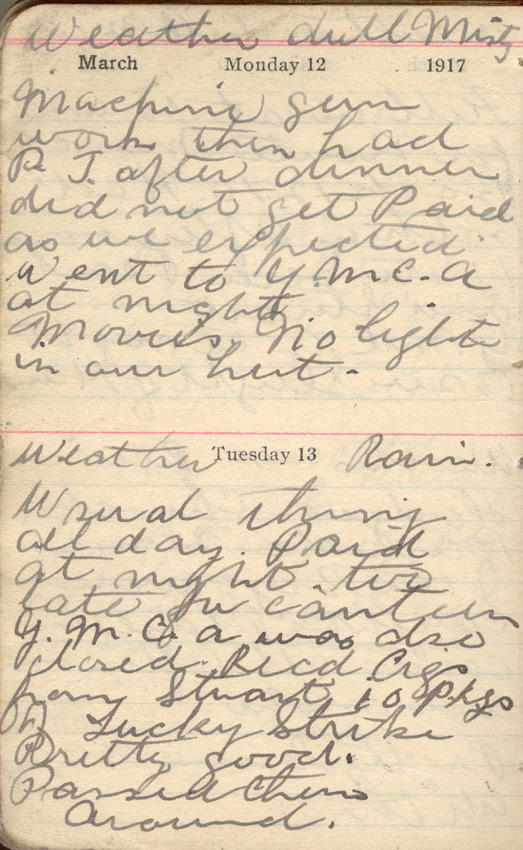 Weather dull Misty
March Monday 12 1917
Machine gun
work then had
P. T. after dinner
did not get Paid
as we expected
Went to Y.M.C.A
at night
Movies. No lights
in our hut.
Weather Tuesday 13 Rain.
Usual thing
all day. Paid
at night too
late for canteen
Y.M.C.a was also
closed. Recd Cigs
from Stuart 10 Pkgs
of Lucky Strike
Pretty good.
Passed them
around.